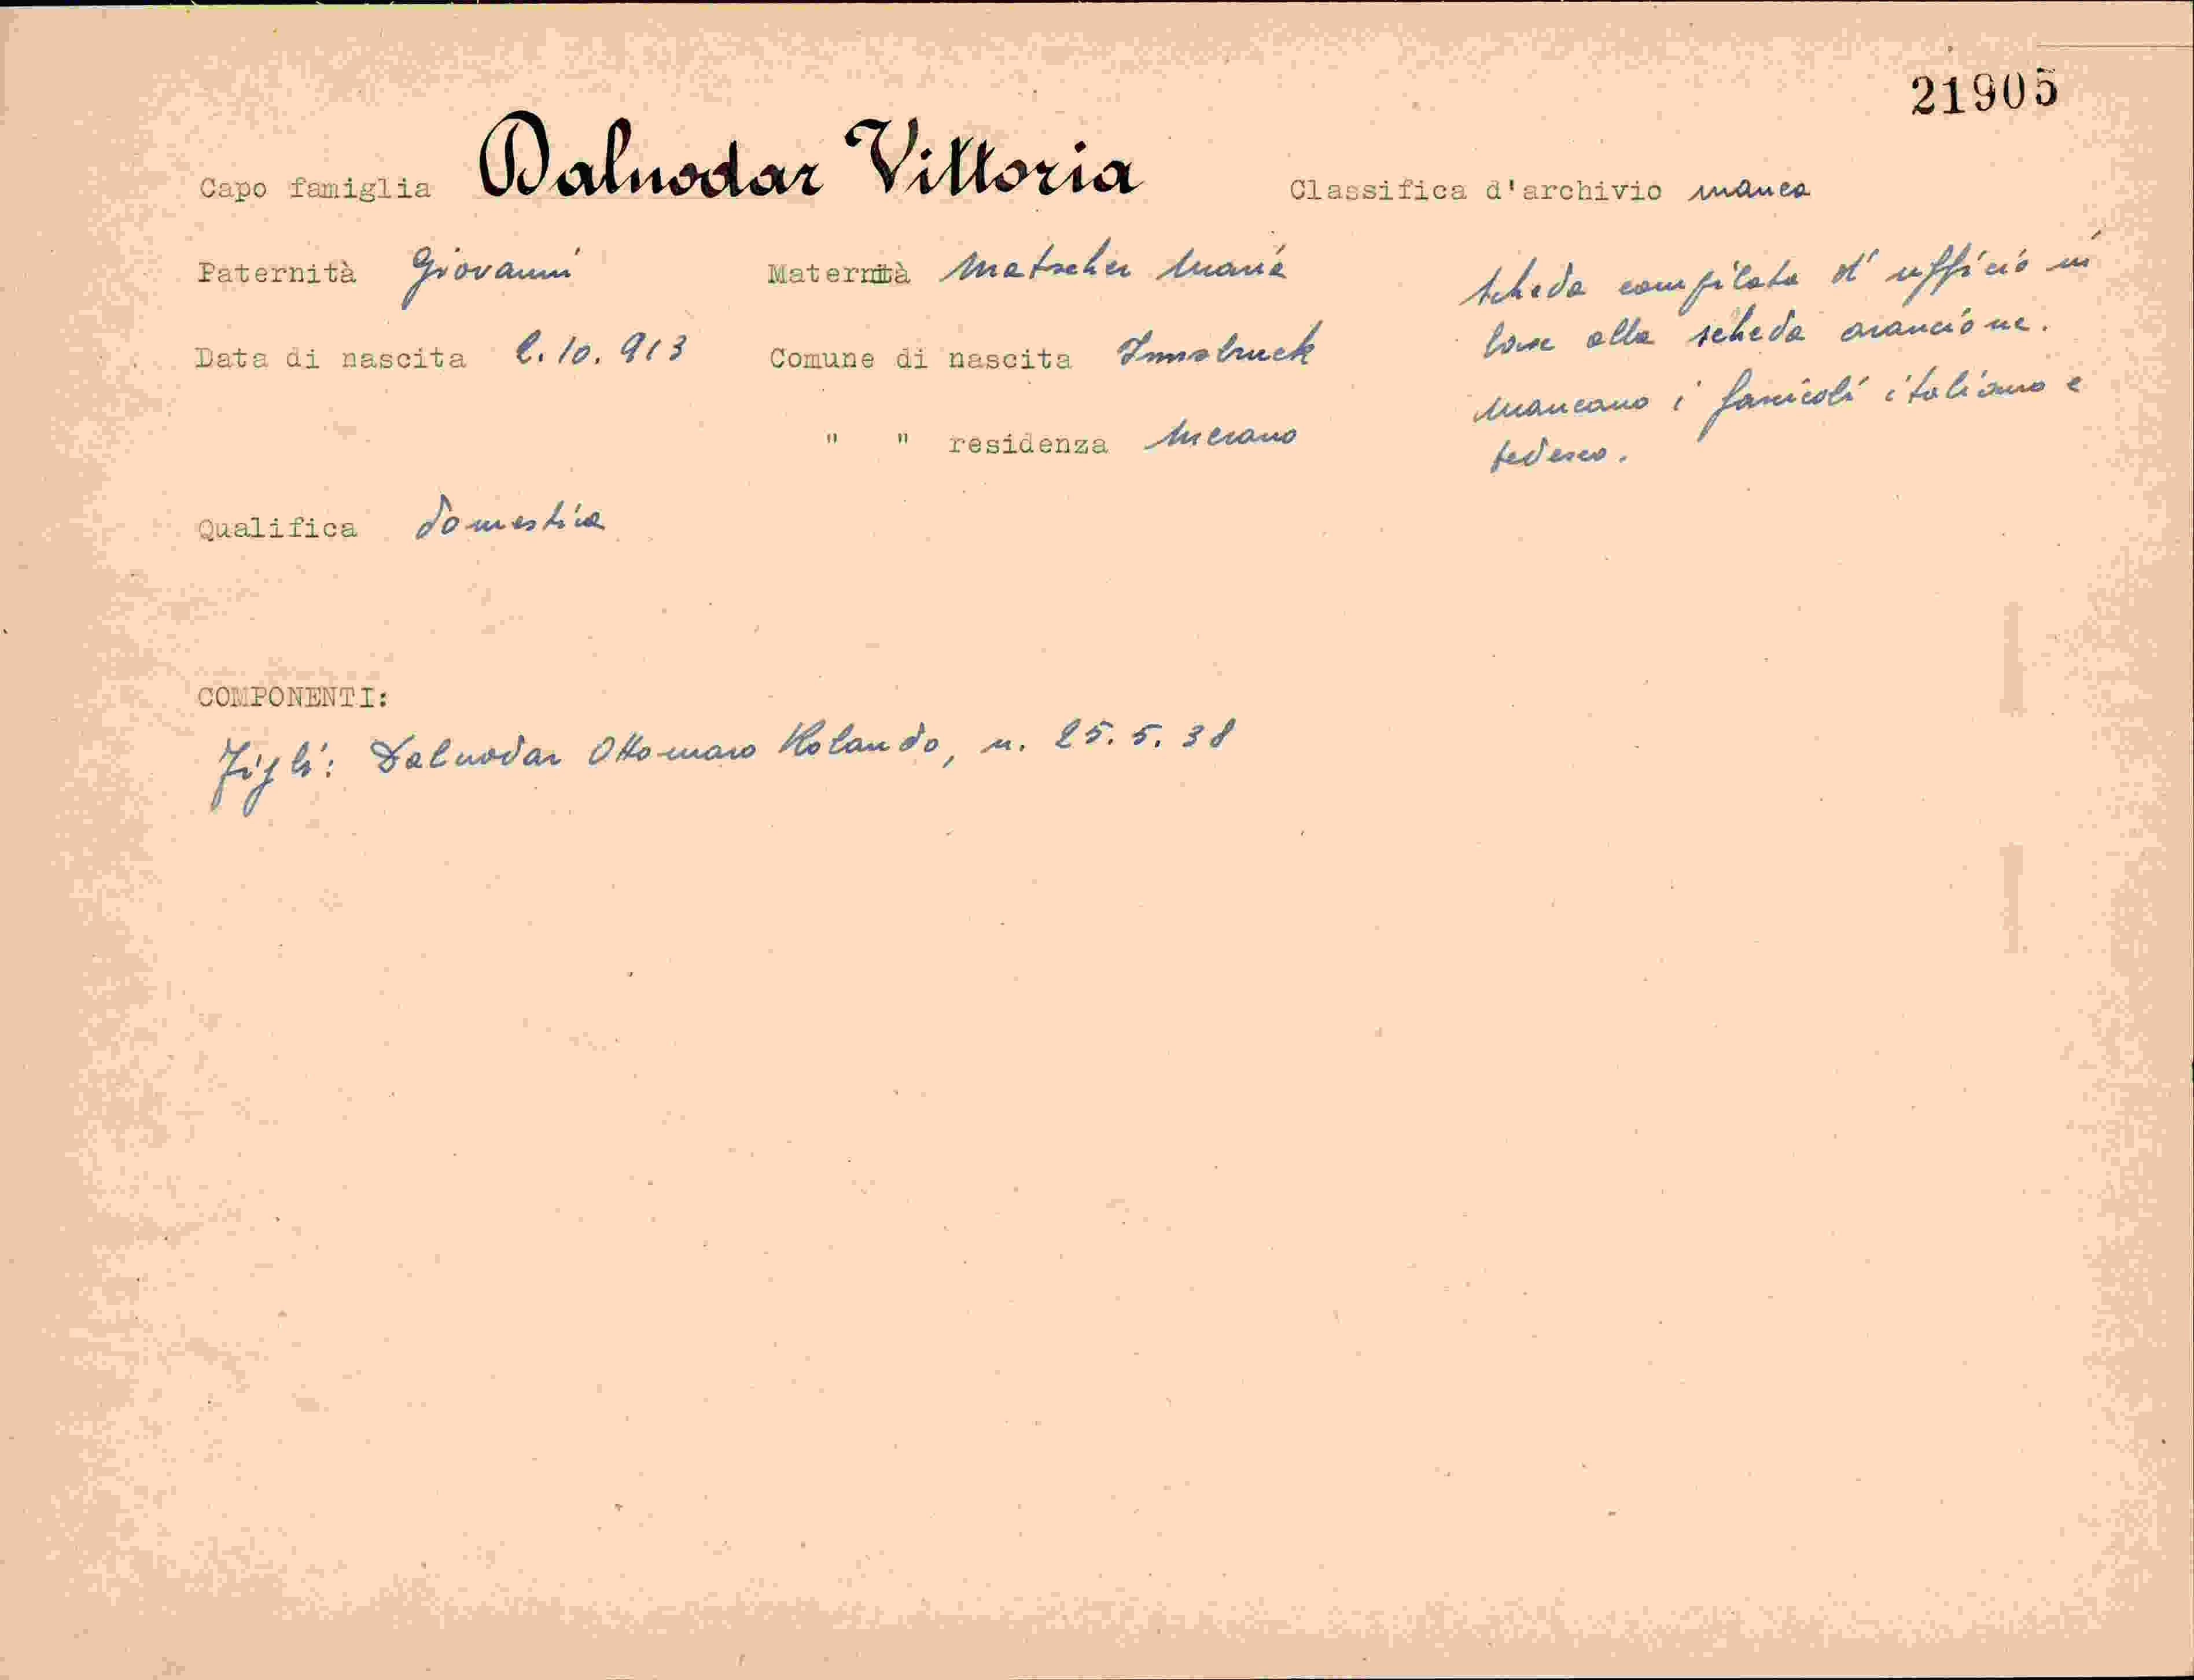 21905
Capo famiglia Dalnodar Vittoria Classifica d'archivio manca
Paternità Giovanni Maternità Matscher Maria
Data di nascita 2.10.913 Comune di nascita Innsbruck
" " residenza Merano
scheda compilata d'ufficio in
base alla scheda arancione.
Mancano i fascicoli italiano e
tedesco.
Qualifica domestica
COMPONENTI:
Figli: Dalnodar Ottomaro Rolando, n. 25.5.38